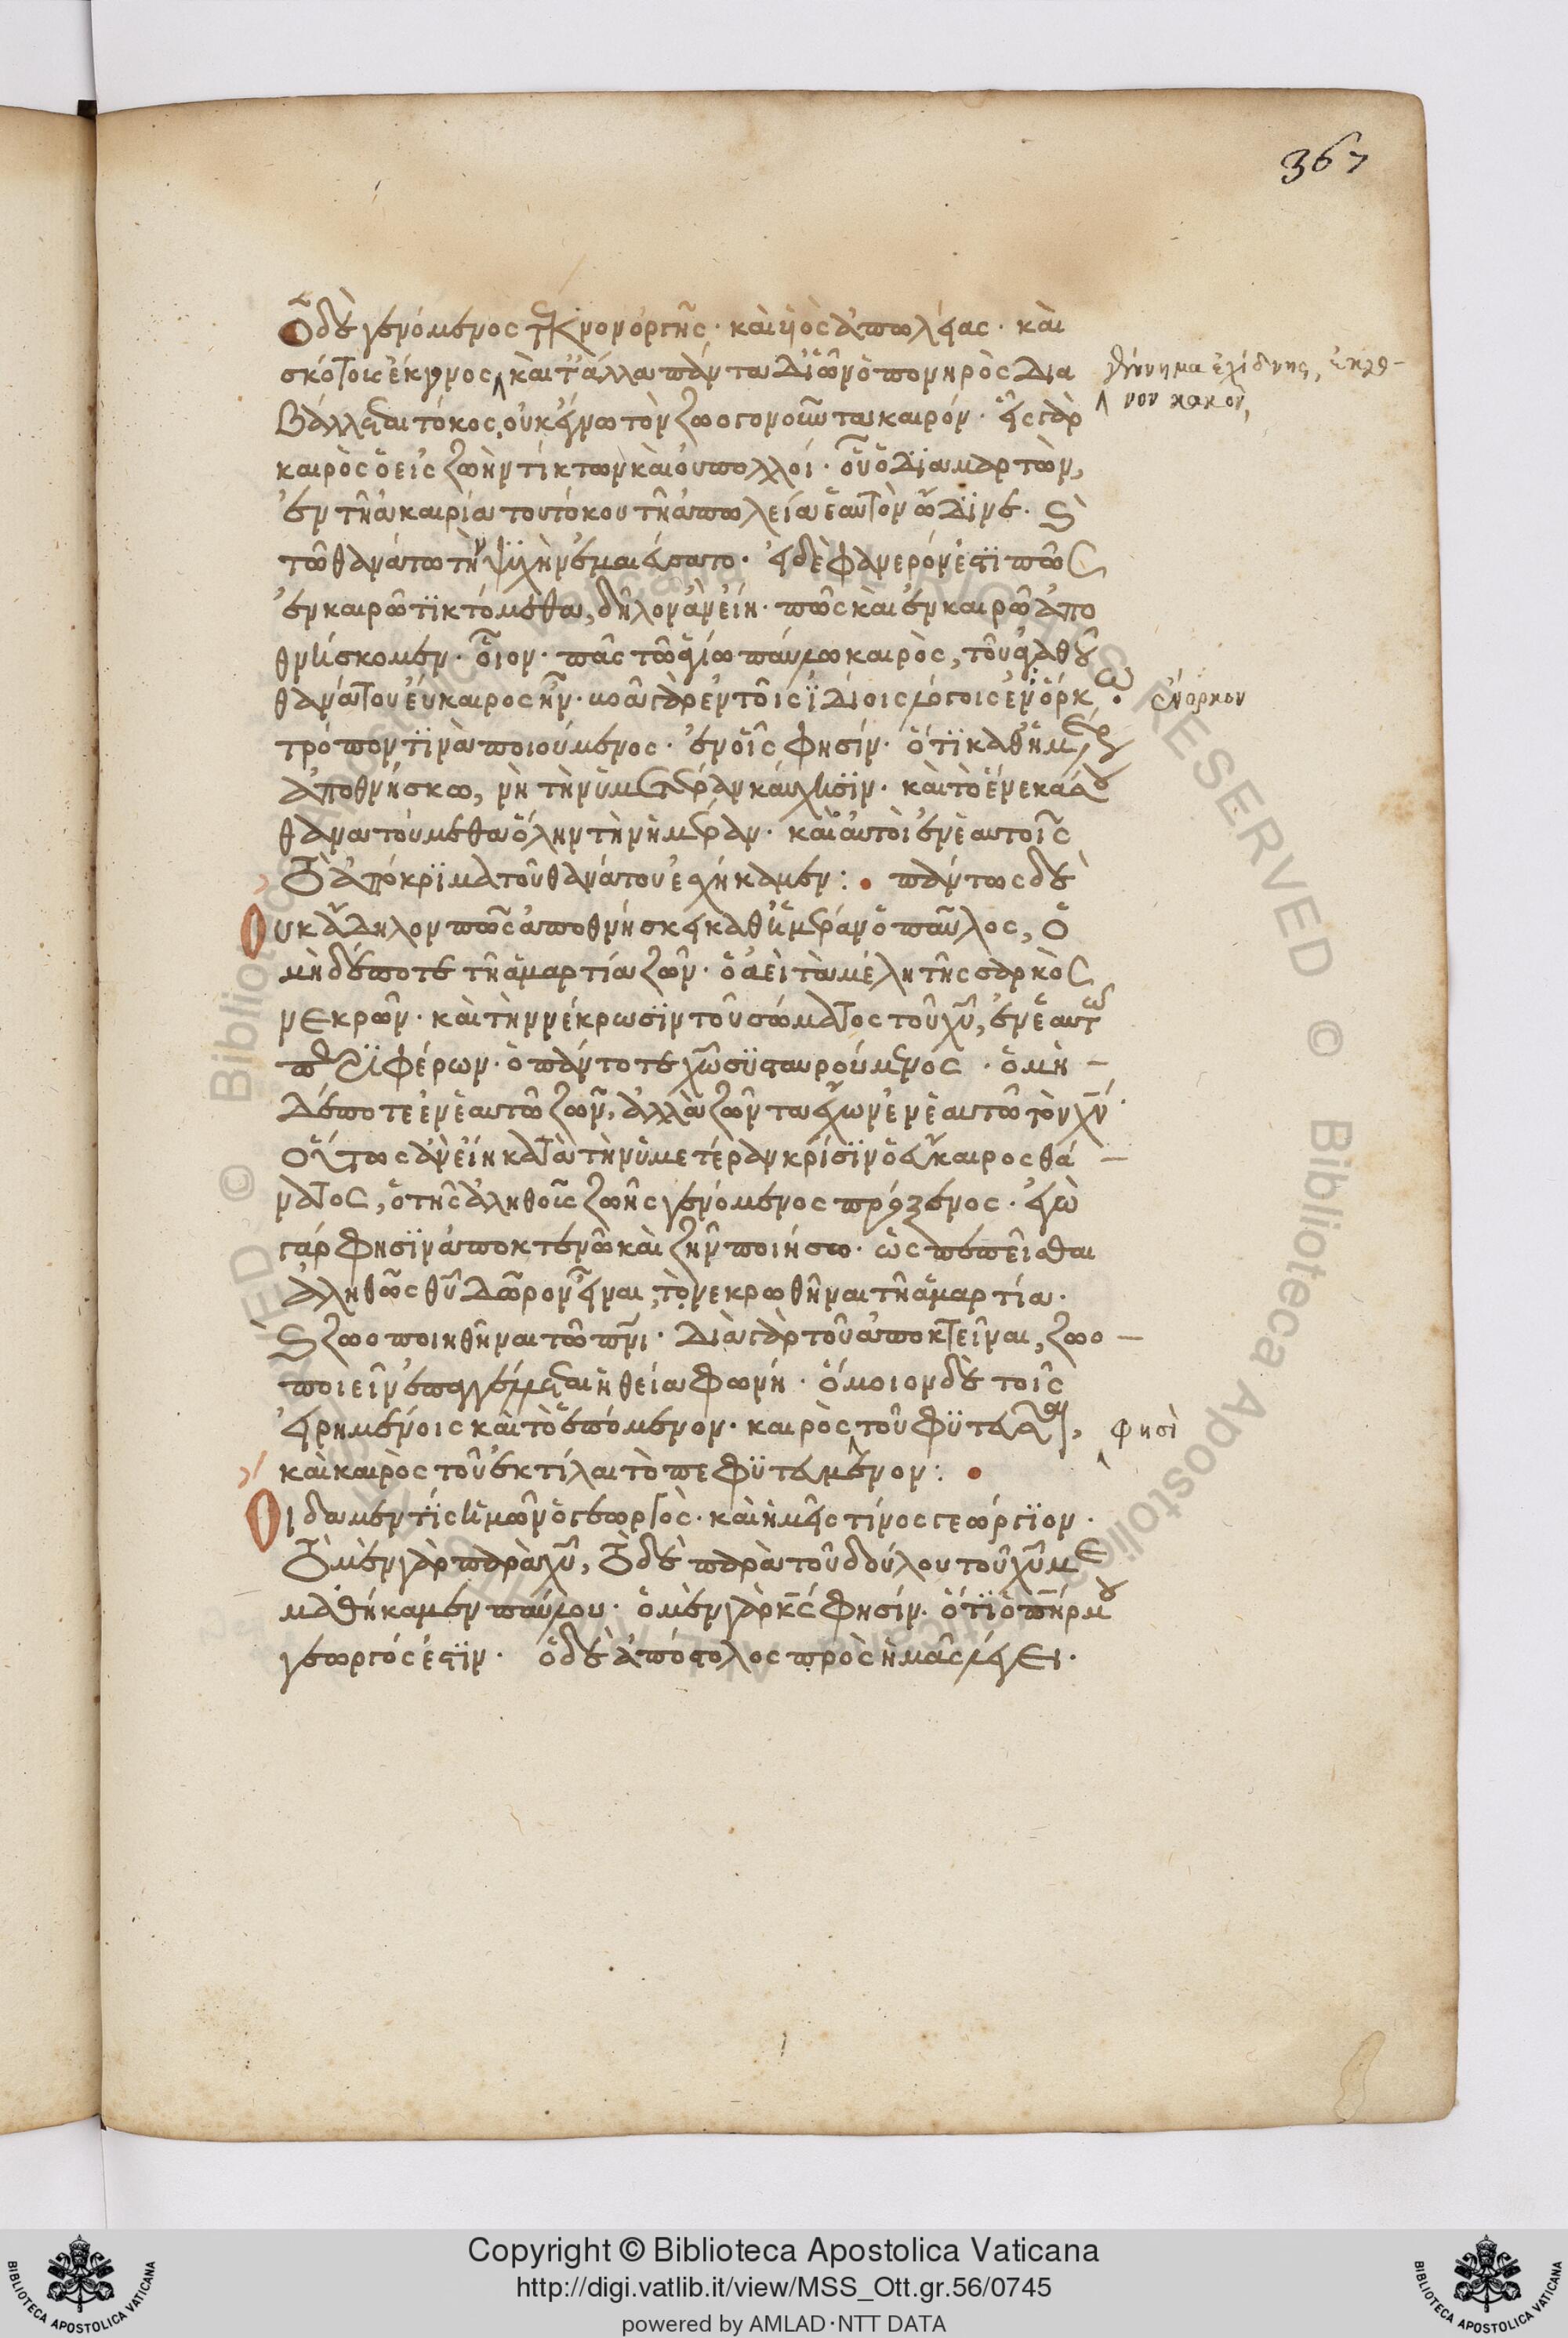 367
Ὁ δὲ γενόμενος τέκνον ὀργῆς · καὶ υἱὸς ἀπωλείας · καὶ
σκότους ἔκγονος, καὶ τἄλλα πάντα δι' ὧν ὁ πονηρὸς δια
γέννημα ἐχίδνης, ἔκγο-
νον κακὸν,
βάλλεται τόκος, οὐκ ἔγνω τὸν ζωογονοῦντα καιρόν · εἷς γὰρ
καιρὸς ὁ εἰς ζωὴν τίκτων καὶ οὐ πολλοί · οὗ ὁ διαμαρτὼν,
ἐν τῇ ἀκαιρία τοῦ τόκου τῇ ἀπωλεία ἑαυτὸν ὤδινε · καὶ
τῷ θανάτω τὴν ψυχὴν ἐμαιεύσατο · εἰ δὲ φανερόν ἐστι πῶς
ἐν καιρῷ τικτόμεθα, δῆλον ἂν εἴη · πῶς καὶ ἐν καιρῷ ἀπο
θνήσκομεν · οἷον · πᾶς τῷ ἁγίω παύλω καιρὸς, τοῦ ἀγαθοῦ
θανάτου εὔκαιρος ἦν · βοᾷ γὰρ ἐν τοῖς ἰδίοις λόγοις ἐνόρκω ·
ἔνορκον
τρόπον τινὰ ποιούμενος · ἐν οἷς φησίν · ὅτι καθ' ἡμέραν
ἀποθνήσκω, νὴ τὴν ὑμετέραν καύχησιν · καὶ τὸ ἕνεκά σου
θανατούμεθα ὅλην τὴν ἡμέραν · καὶ αὐτοὶ ἐν ἑαυτοῖς
τὸ ἀπόκριμα τοῦ θανάτου ἐσχήκαμεν : • πάντως δὲ
Οὐκ ἄδηλον πῶς ἀποθνήσκει καθ' ἡμέραν ὁ παῦλος, ὁ
μηδέποτε τῇ ἁμαρτία ζῶν · ὁ ἀεὶ τὰ μέλη τῆς σαρκὸς
νεκρῶν · καὶ τὴν νέκρωσιν τοῦ σώματος τοῦ χῦ, ἐν ἑαυτῷ
περιφέρων · ὁ πάντοτε χῶ συσταυρούμενος · ὁ μη -
δέποτε ἐν ἑαυτῷ ζῶν, ἀλλὰ ζῶντα ἔχων ἐν ἑαυτῷ τὸν χν ·
οὗτως ἂν εἴη κατὰ τὴν ὑμετέραν κρίσιν ὁ εὔκαιρος θά -
νατος, ὁ τῆς ἀληθοῦς ζωῆς γενόμενος πρόξενος · ἐγὼ
γάρ φησιν ἀποκτενῶ καὶ ζῆν ποιήσω · ὡς πεπεῖσθαι
ἀληθῶς θῦ δῶρον εἶναι, τὸ νεκρωθῆναι τῇ ἁμαρτία ·
καὶ ζωοποιηθῆναι τῷ πνι · διὰ γὰρ τοῦ ἀποκτεῖναι, ζωο -
ποιεῖν ἐπαγγέλλεται ἡ θεία φωνή · ὅμοιον δὲ τοῖς
εἰρημένοις καὶ τὸ ἑπόμενον · καιρὸς τοῦ φυτεῦσαι,
φησὶ
καὶ καιρὸς τοῦ ἐκτίλαι τὸ πεφυτευμένον : •
Οἴδαμεν τίς ἡμῶν ὁ γεωργὸς · καὶ ἡμεῖς τίνος γεώργιον ·
τὸ μὲν γὰρ παρὰ χῦ, τὸ δὲ παρὰ τοῦ δούλου τοῦ χῦ με
μαθήκαμεν παύλου · ὁ μὲν γὰρ κς φησίν · ὅτι ὁ πηρ μου
γεωργός ἐστιν · ὁ δὲ ἀπόστολος πρὸς ἡμᾶς λέγει ·
Copyright © Biblioteca Apostolica Vaticana
http://digi.vatlib.it/view/MSS_Ott.gr.56/0745
powered by AMLAD·NTT DATA